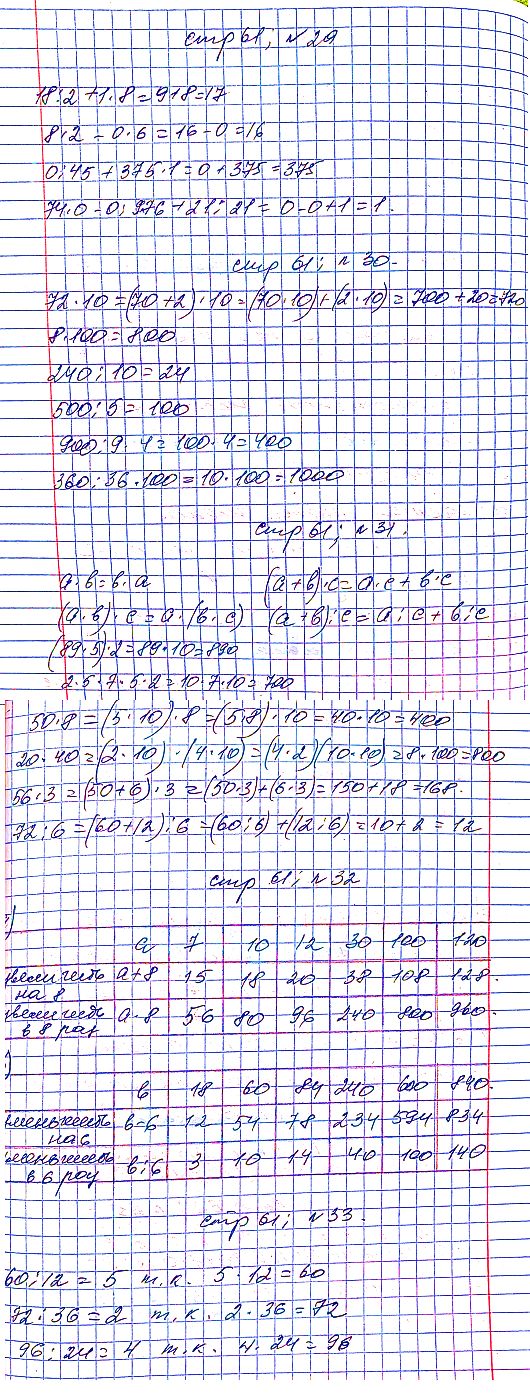 стр 61; №29
18:2+1·8=9+8=17
8·2-0·6=16-0=16
0:45+375·1=0+375=375
74·0-0:976+21:21=0-0+1=1.
стр 61; №30.
72·10=(70+2)·10=(70·10)+(2·10)=700+20=720
8·100=800
240:10=24
500:5=100
900:9·4=100·4=400
360:36·100=10·100=1000
стр 61; №31.
а·в=в·а (а+в)·с=а·с+в·с
(а·в)·с=а·(в·с) (а+в):с=а:с+в:с
(89·5)·2=89·10=890
2·5·7·5·2=10·7·10=700
50·8=(5·10)·8=(5·8)·10=40·10=400
20·40=(2·10)·(4·10)=(4·2)(10·10)=8·100=800
56·3=(50+6)·3=(50·3)+(6·3)=150+18=168.
72:6=(60+12):6=(60:6)+(12:6)=10+2=12
стр 61; №32
)
а 7 10 12 30 100 120
величить на 8 а+8 15 18 20 38 108 128.
величить в 8 раз а·8 56 80 96 240 800 960.
)
в 18 60 84 240 600 840.
меньшить на 6 в-6 12 54 78 234 594 834
меньшить в 6 раз в:6 3 10 14 40 100 140
стр 61; №33.
60:12=5 т.к. 5·12=60
72:36=2 т.к. 2·36=72
96:24=4 т.к. 4·24=96